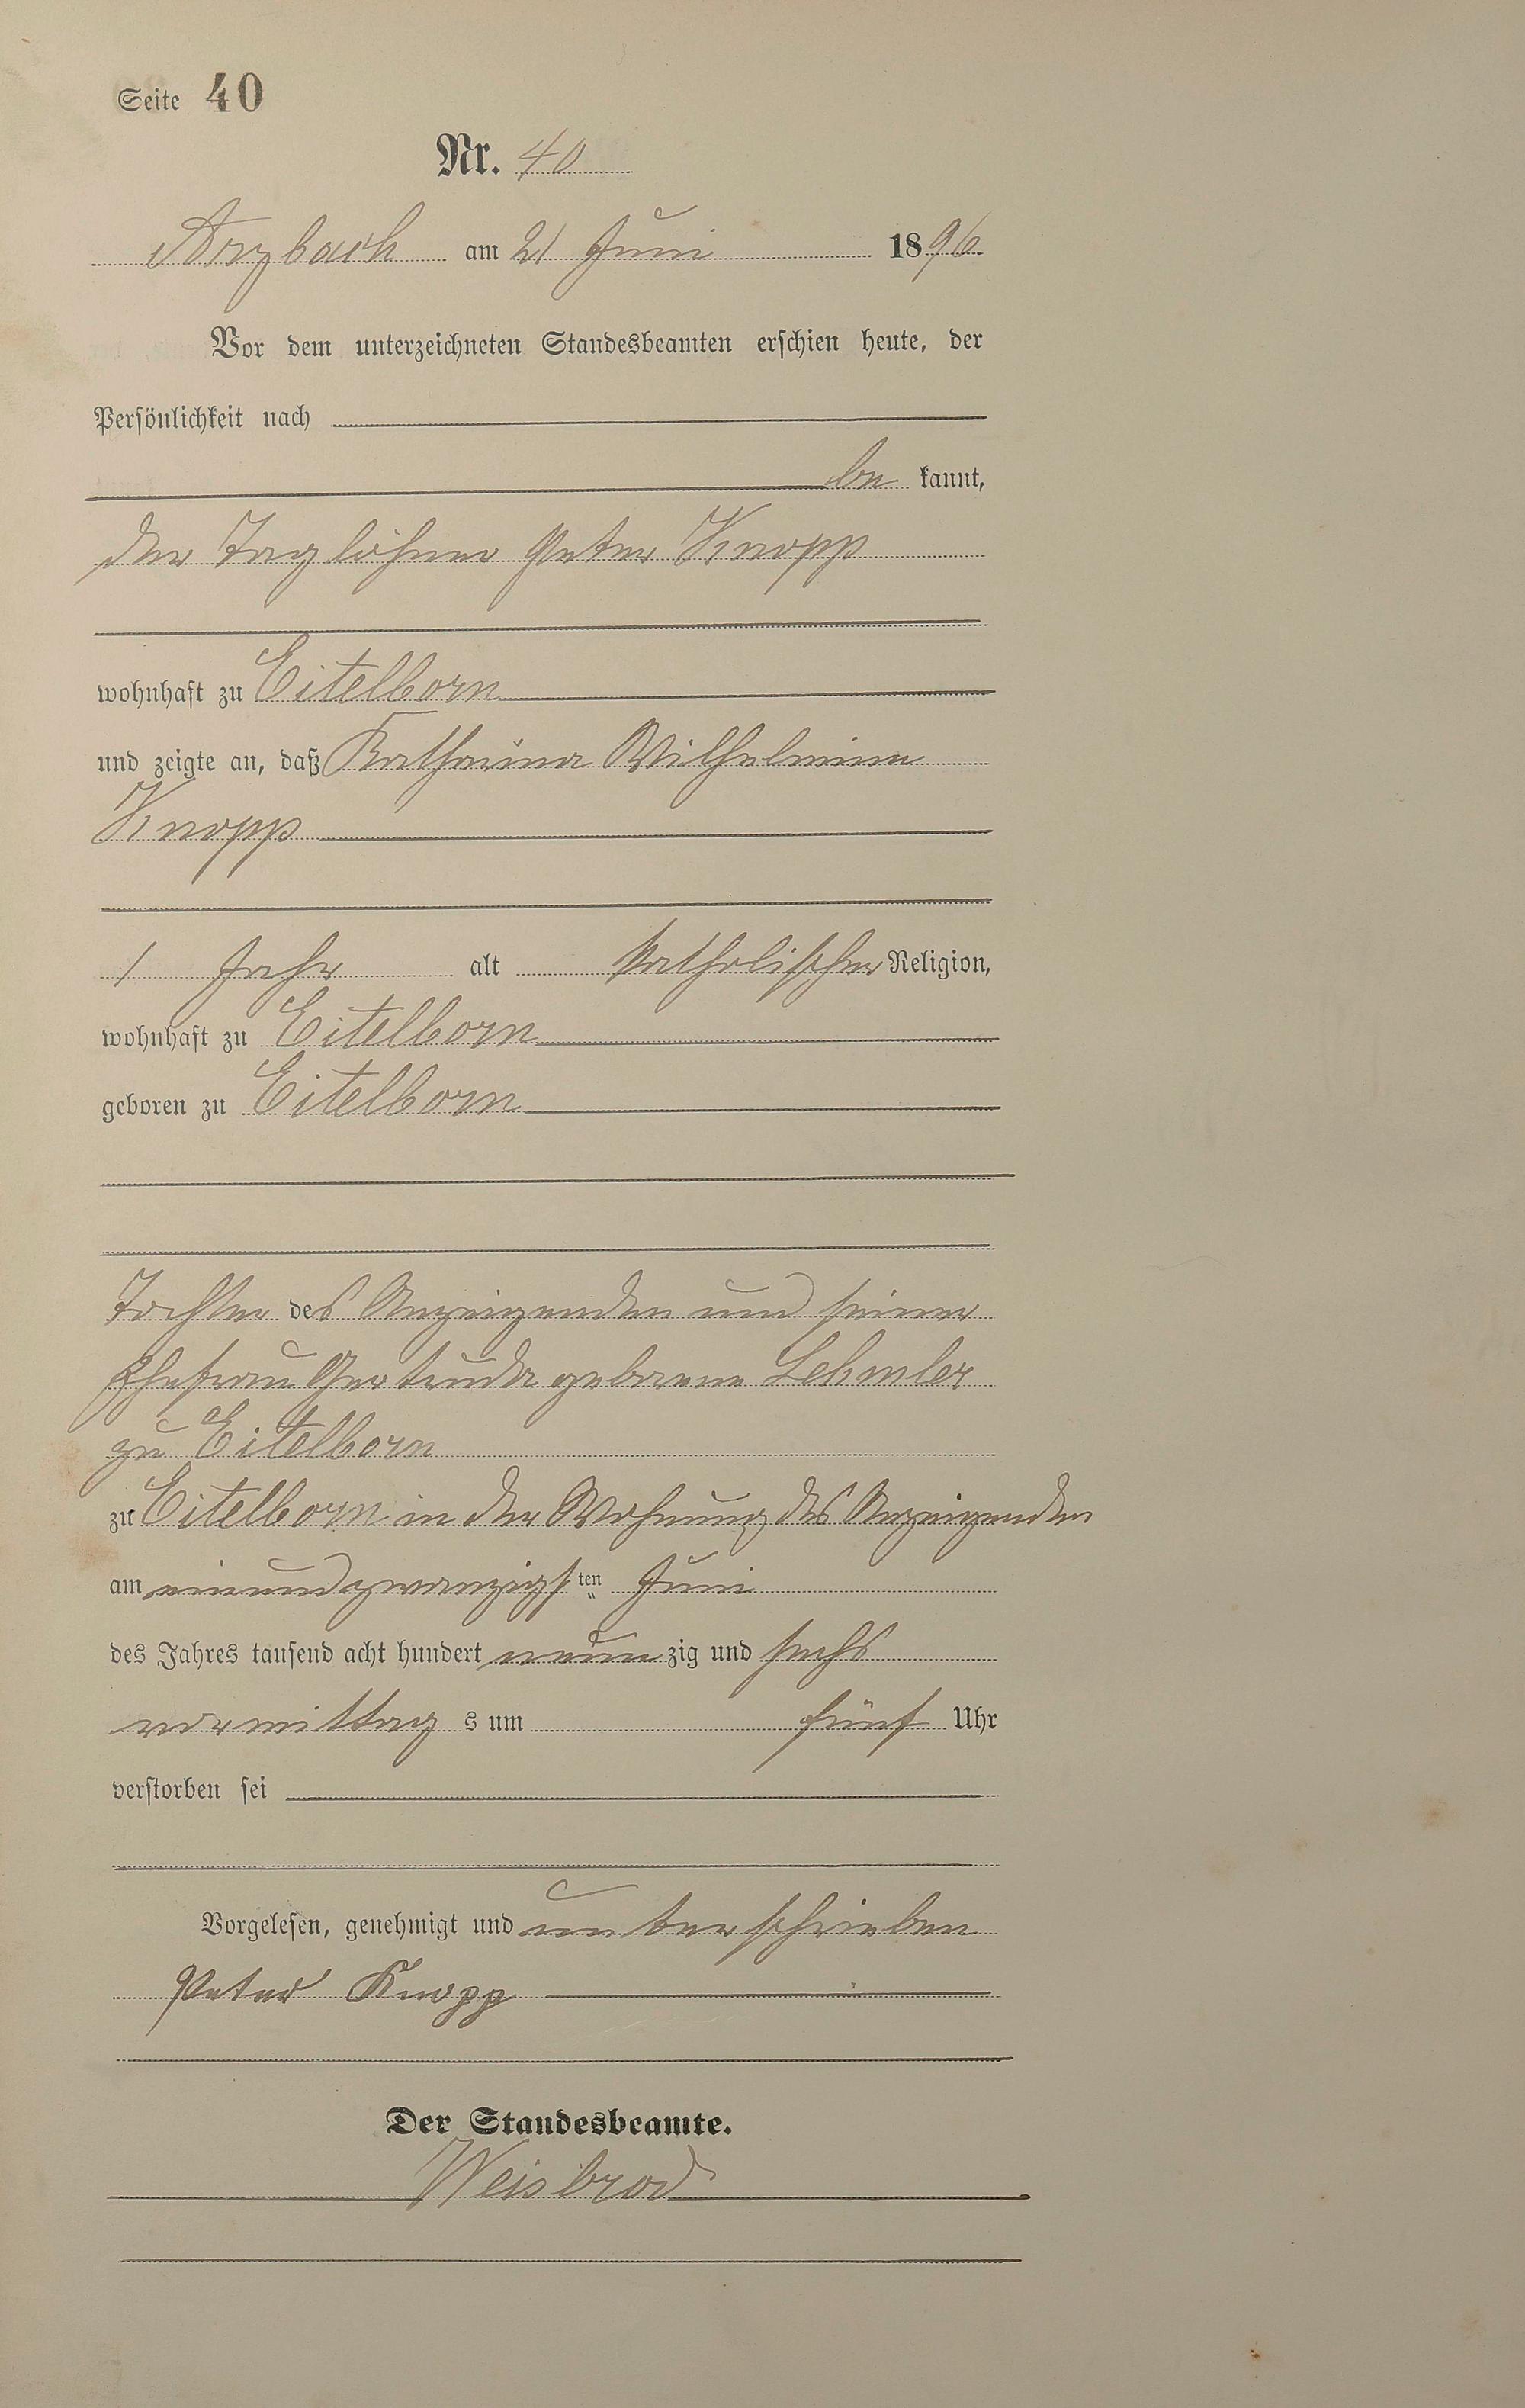 Seite 40
Nr. 40
Arzbach am 21 Juni 1896
Vor dem unterzeichneten Standesbeamten erschien heute, der
Persönlichkeit nach
be kannt,
der Taglöhner Peter Knopp
wohnhaft zu Eitelborn
und zeigte an, daß Katharina Wilhelmine
Knopp
1 Jahr alt katholischer Religion,
wohnhaft zu Eitelborn
geboren zu Eitelborn
Tochter des Anzeigenden und seiner
Ehefrau Gertruda geborene Lehmler
zu Eitelborn
zu Eitelborn in der Wohnung des Anzeigenden
am einundzwanzigsten Juni
des Jahres tausend acht hundert neunzig und sechs
vormittags um fünf Uhr
verstorben sei
Vorgelesen, genehmigt und unterschrieben
Peter Knopp
Der Standesbeamte.
Weisbrod